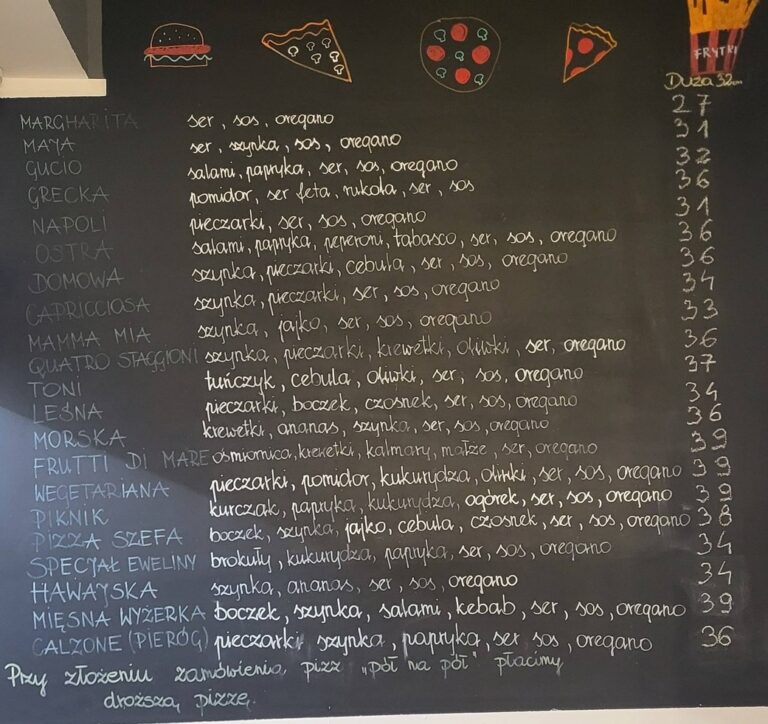 FRYTKI
DUŻA 32cm
MARGHARITA ser, sos, oregano 27
MAYA ser, szynka, sos, oregano 31
GUCIO salami, papryka, ser, sos, oregano 32
GRECKA pomidor, ser feta, rukola, ser, sos 36
NAPOLI pieczarki, ser, sos, oregano 31
OSTRA salami, papryka, peperoni, tabasco, ser, sos, oregano 36
DOMOWA szynka, pieczarki, cebula, ser, sos, oregano 36
CAPRICCIOSA szynka, pieczarki, ser, sos, oregano 34
MAMMA MIA szynka, jajko, ser, sos, oregano 33
QUATRO STAGGIONI szynka, pieczarki, krewetki, oliwki, ser, oregano 36
TONI tuńczyk, cebula, oliwki, ser, sos, oregano 37
LEŚNA pieczarki, boczek, czosnek, ser, sos, oregano 34
MORSKA krewetki, ananas, szynka, ser, sos, oregano 36
FRUTTI DI MARE ośmiornica, krewetki, kalmary, małże, ser, oregano 39
WEGETARIANA pieczarki, pomidor, kukurydza, oliwki, ser, sos, oregano 39
PIKNIK kurczak, papryka, kukurydza, ogórek, ser, sos, oregano 39
PIZZA SZEFA boczek, szynka, jajko, cebula, czosnek, ser, sos, oregano 38
SPECJAŁ EWELINY brokuły, kukurydza, papryka, ser, sos, oregano 34
HAWAJSKA szynka, ananas, ser, sos, oregano 34
MIĘSNA WYŻERKA boczek, szynka, salami, kebab, ser, sos, oregano 39
CALZONE (PIERÓG) pieczarki, szynka, papryka, ser, sos, oregano 36
Przy złożeniu zamówienia pizz „pół na pół" płacimy
droższą pizzę.